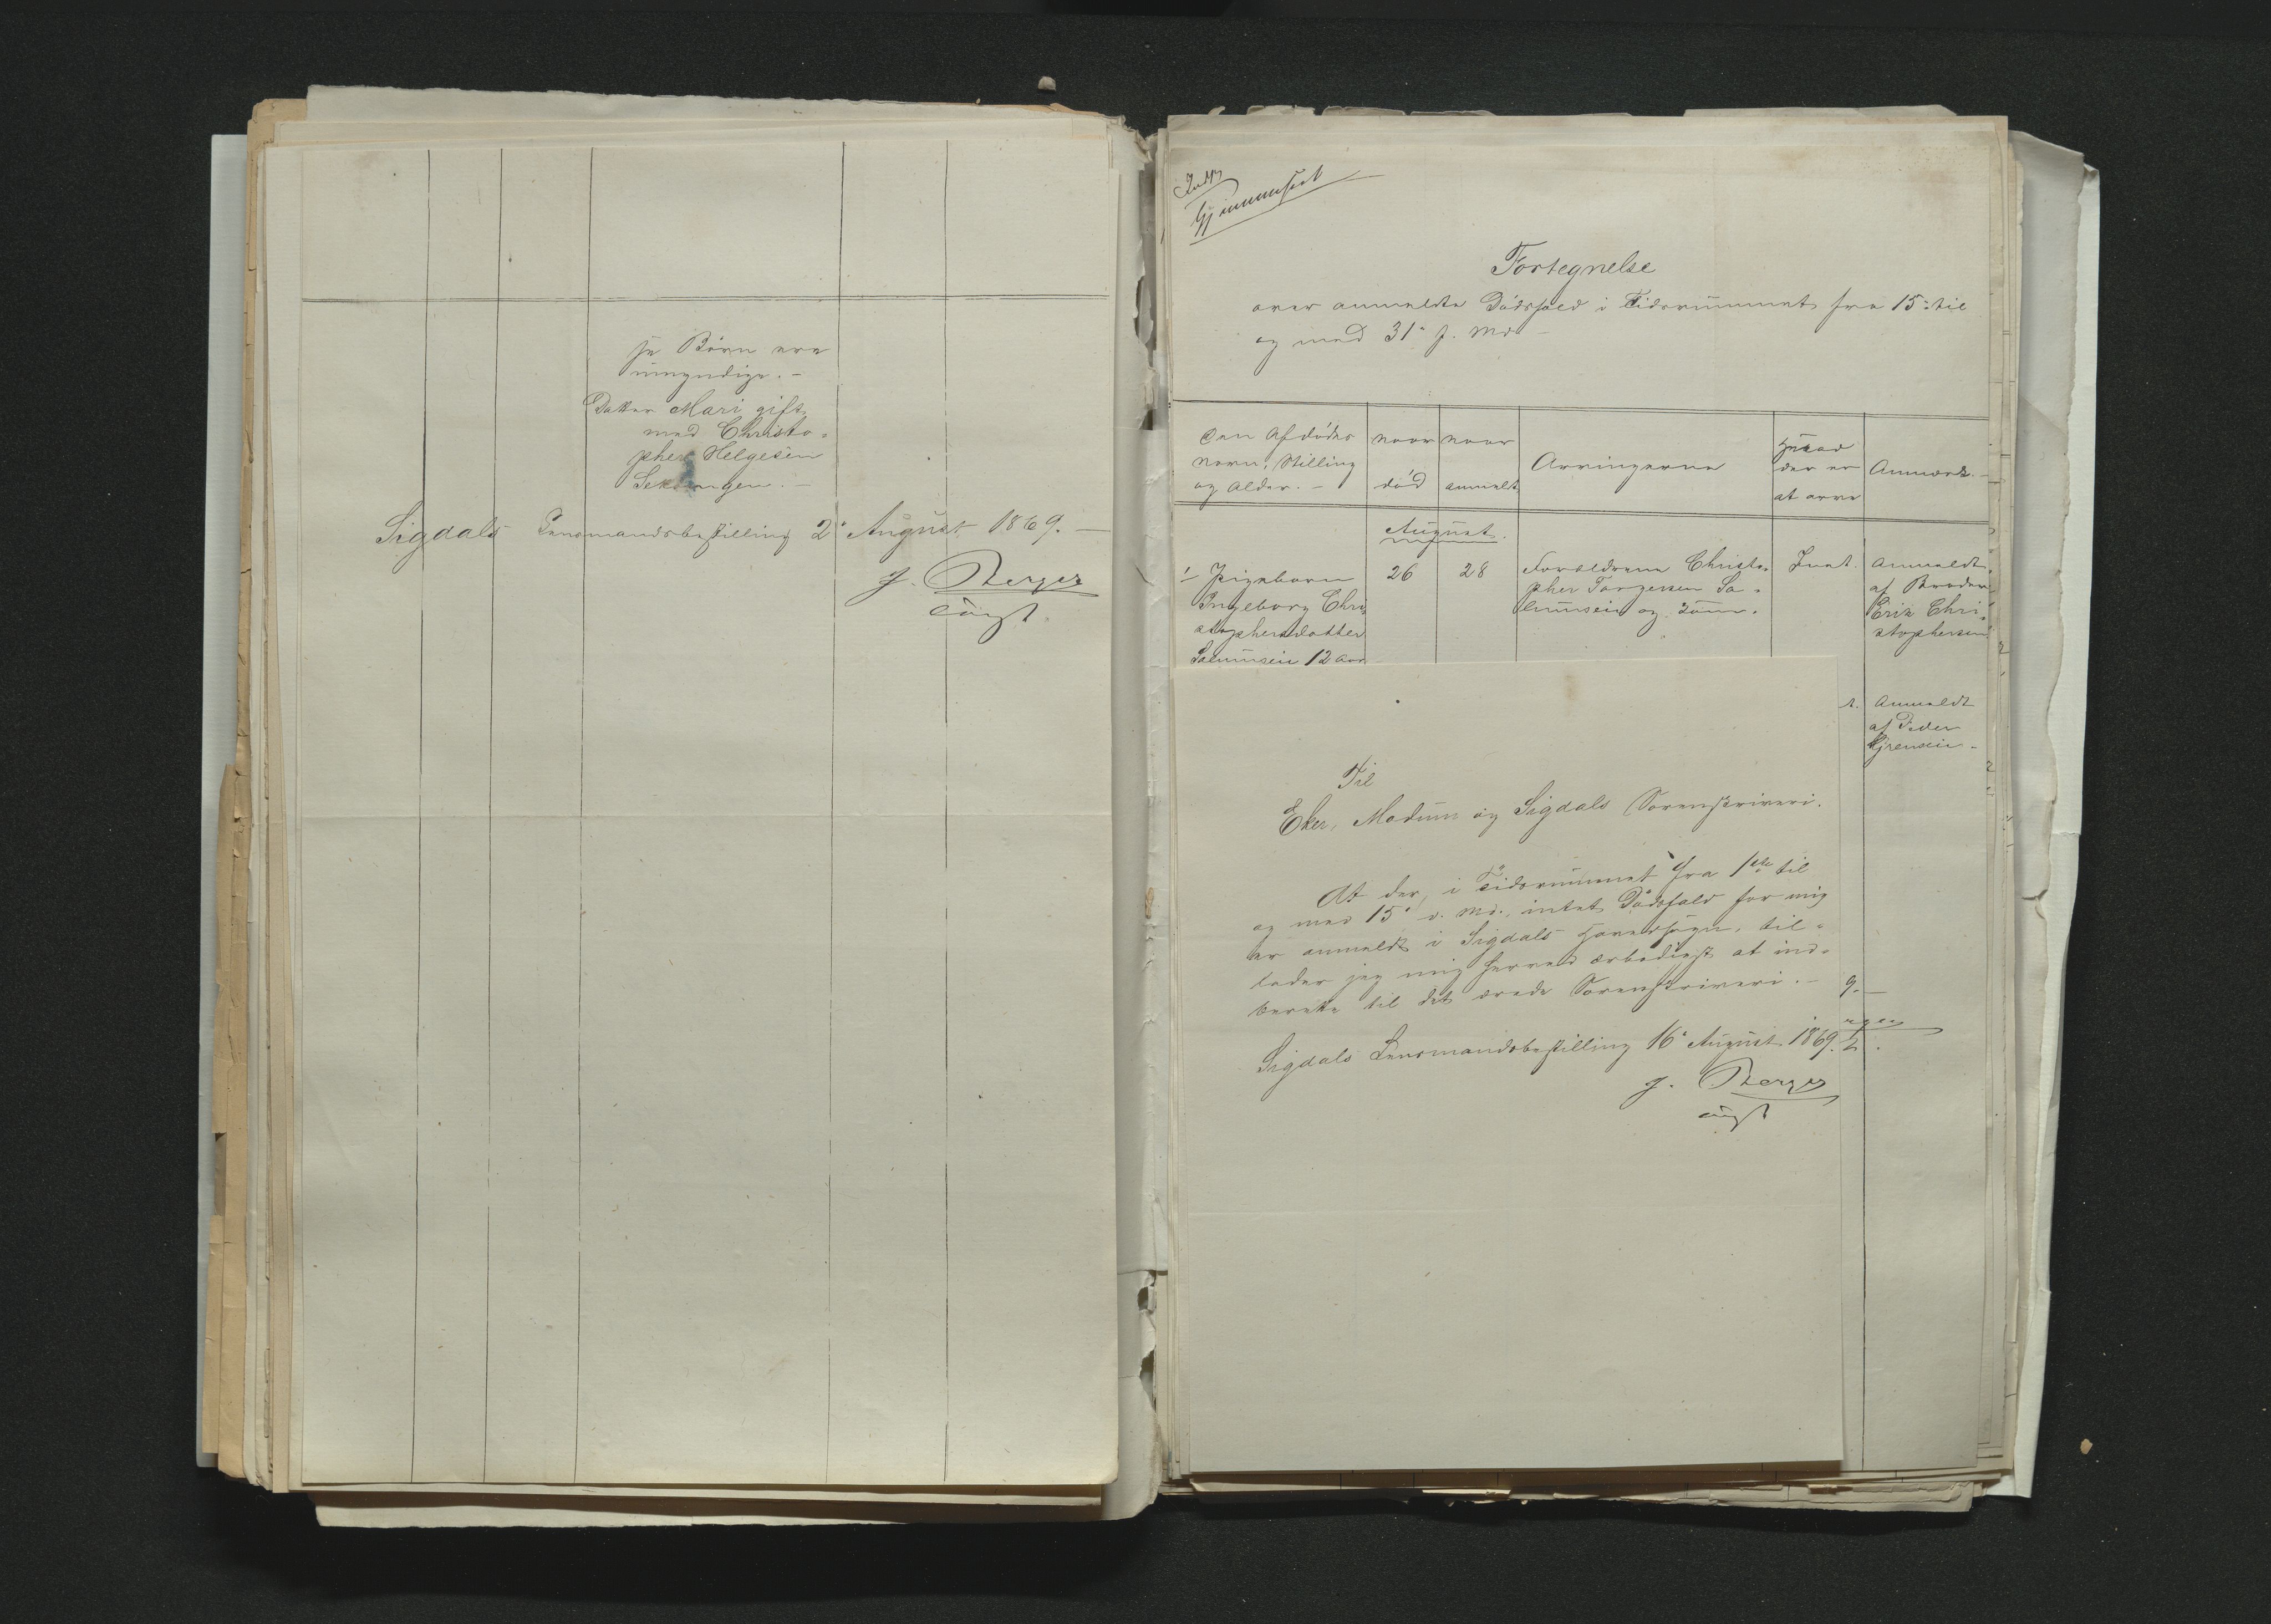 se Børn ere
umyndige. -
Datter Mari gift
med Christo-
pher Helgesen
Sigdals Lensmandsbestilling 2' August 1869. -
J. Berger
Gjennemseet
Fortegnelse
over anmeldte Dødsfald i Tidsrummet fra 15' til
og med 31' f. Md -
Den Afdødes
Navn, Stilling
og Alder. -
naar
død
naar
anmeldt
Arvingerne
Hvad
der er
at arve
Anmærk. -
August.
1 Pigebarn
Ingeborg Chri-
stophersdatter
12 Aar
26
28
Forældrene Christo-
pher Torgersen Sa-
og
Intet.
Anmeldt
af Broder
Erik Chri-
stophersen
t.
Anmeldt
af Peder
Til
Eker, Modum og Sigdals Sorenskriveri.
At der, i Tidsrummet fra 1ste til
og med 15' d. Md., intet Dødsfald for mig
er anmeldt i Sigdals Hovedsogn, til-
lader jeg mig herved ærbødigst at ind-
berette til det ærede Sorenskriveri. -
Sigdals Lensmandsbestilling 16' August 1869.
J. Berger
9. -